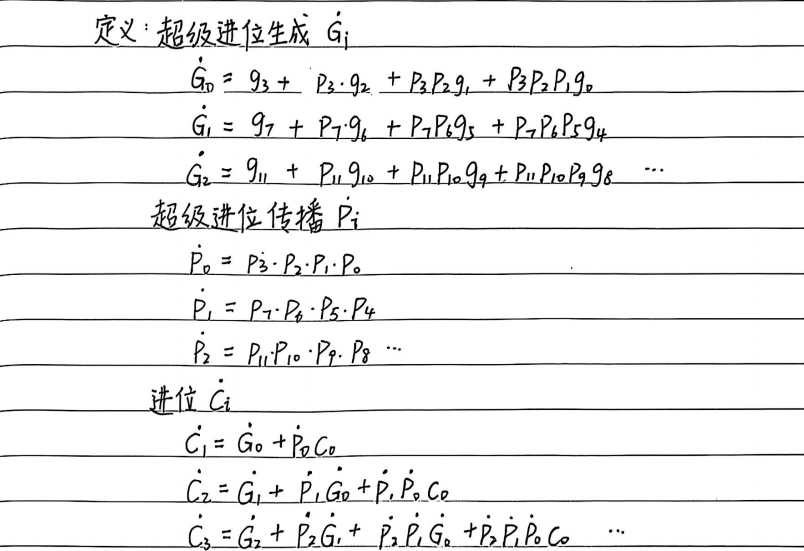 定义：超级进位生成 Ġᵢ
Ġ₀ = g₃ + p₃·g₂ + p₃p₂g₁ + p₃p₂p₁g₀
Ġ₁ = g₇ + p₇·g₆ + p₇p₆g₅ + p₇p₆p₅g₄
Ġ₂ = g₁₁ + p₁₁g₁₀ + p₁₁p₁₀g₉ + p₁₁p₁₀p₉g₈ ···
超级进位传播 Ṗᵢ
Ṗ₀ = p₃·p₂·p₁·p₀
Ṗ₁ = p₇·p₆·p₅·p₄
Ṗ₂ = p₁₁·p₁₀·p₉·p₈ ···
进位 Ċᵢ
Ċ₁ = Ġ₀ + Ṗ₀C₀
Ċ₂ = Ġ₁ + Ṗ₁Ġ₀ + Ṗ₁Ṗ₀C₀
Ċ₃ = Ġ₂ + Ṗ₂Ġ₁ + Ṗ₂Ṗ₁Ġ₀ + Ṗ₂Ṗ₁Ṗ₀C₀ ···